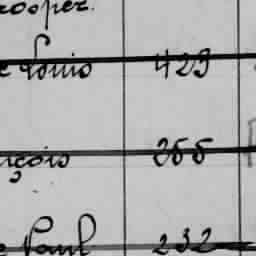 cooper.
e Louis 429
nçois 355
e Paul 232